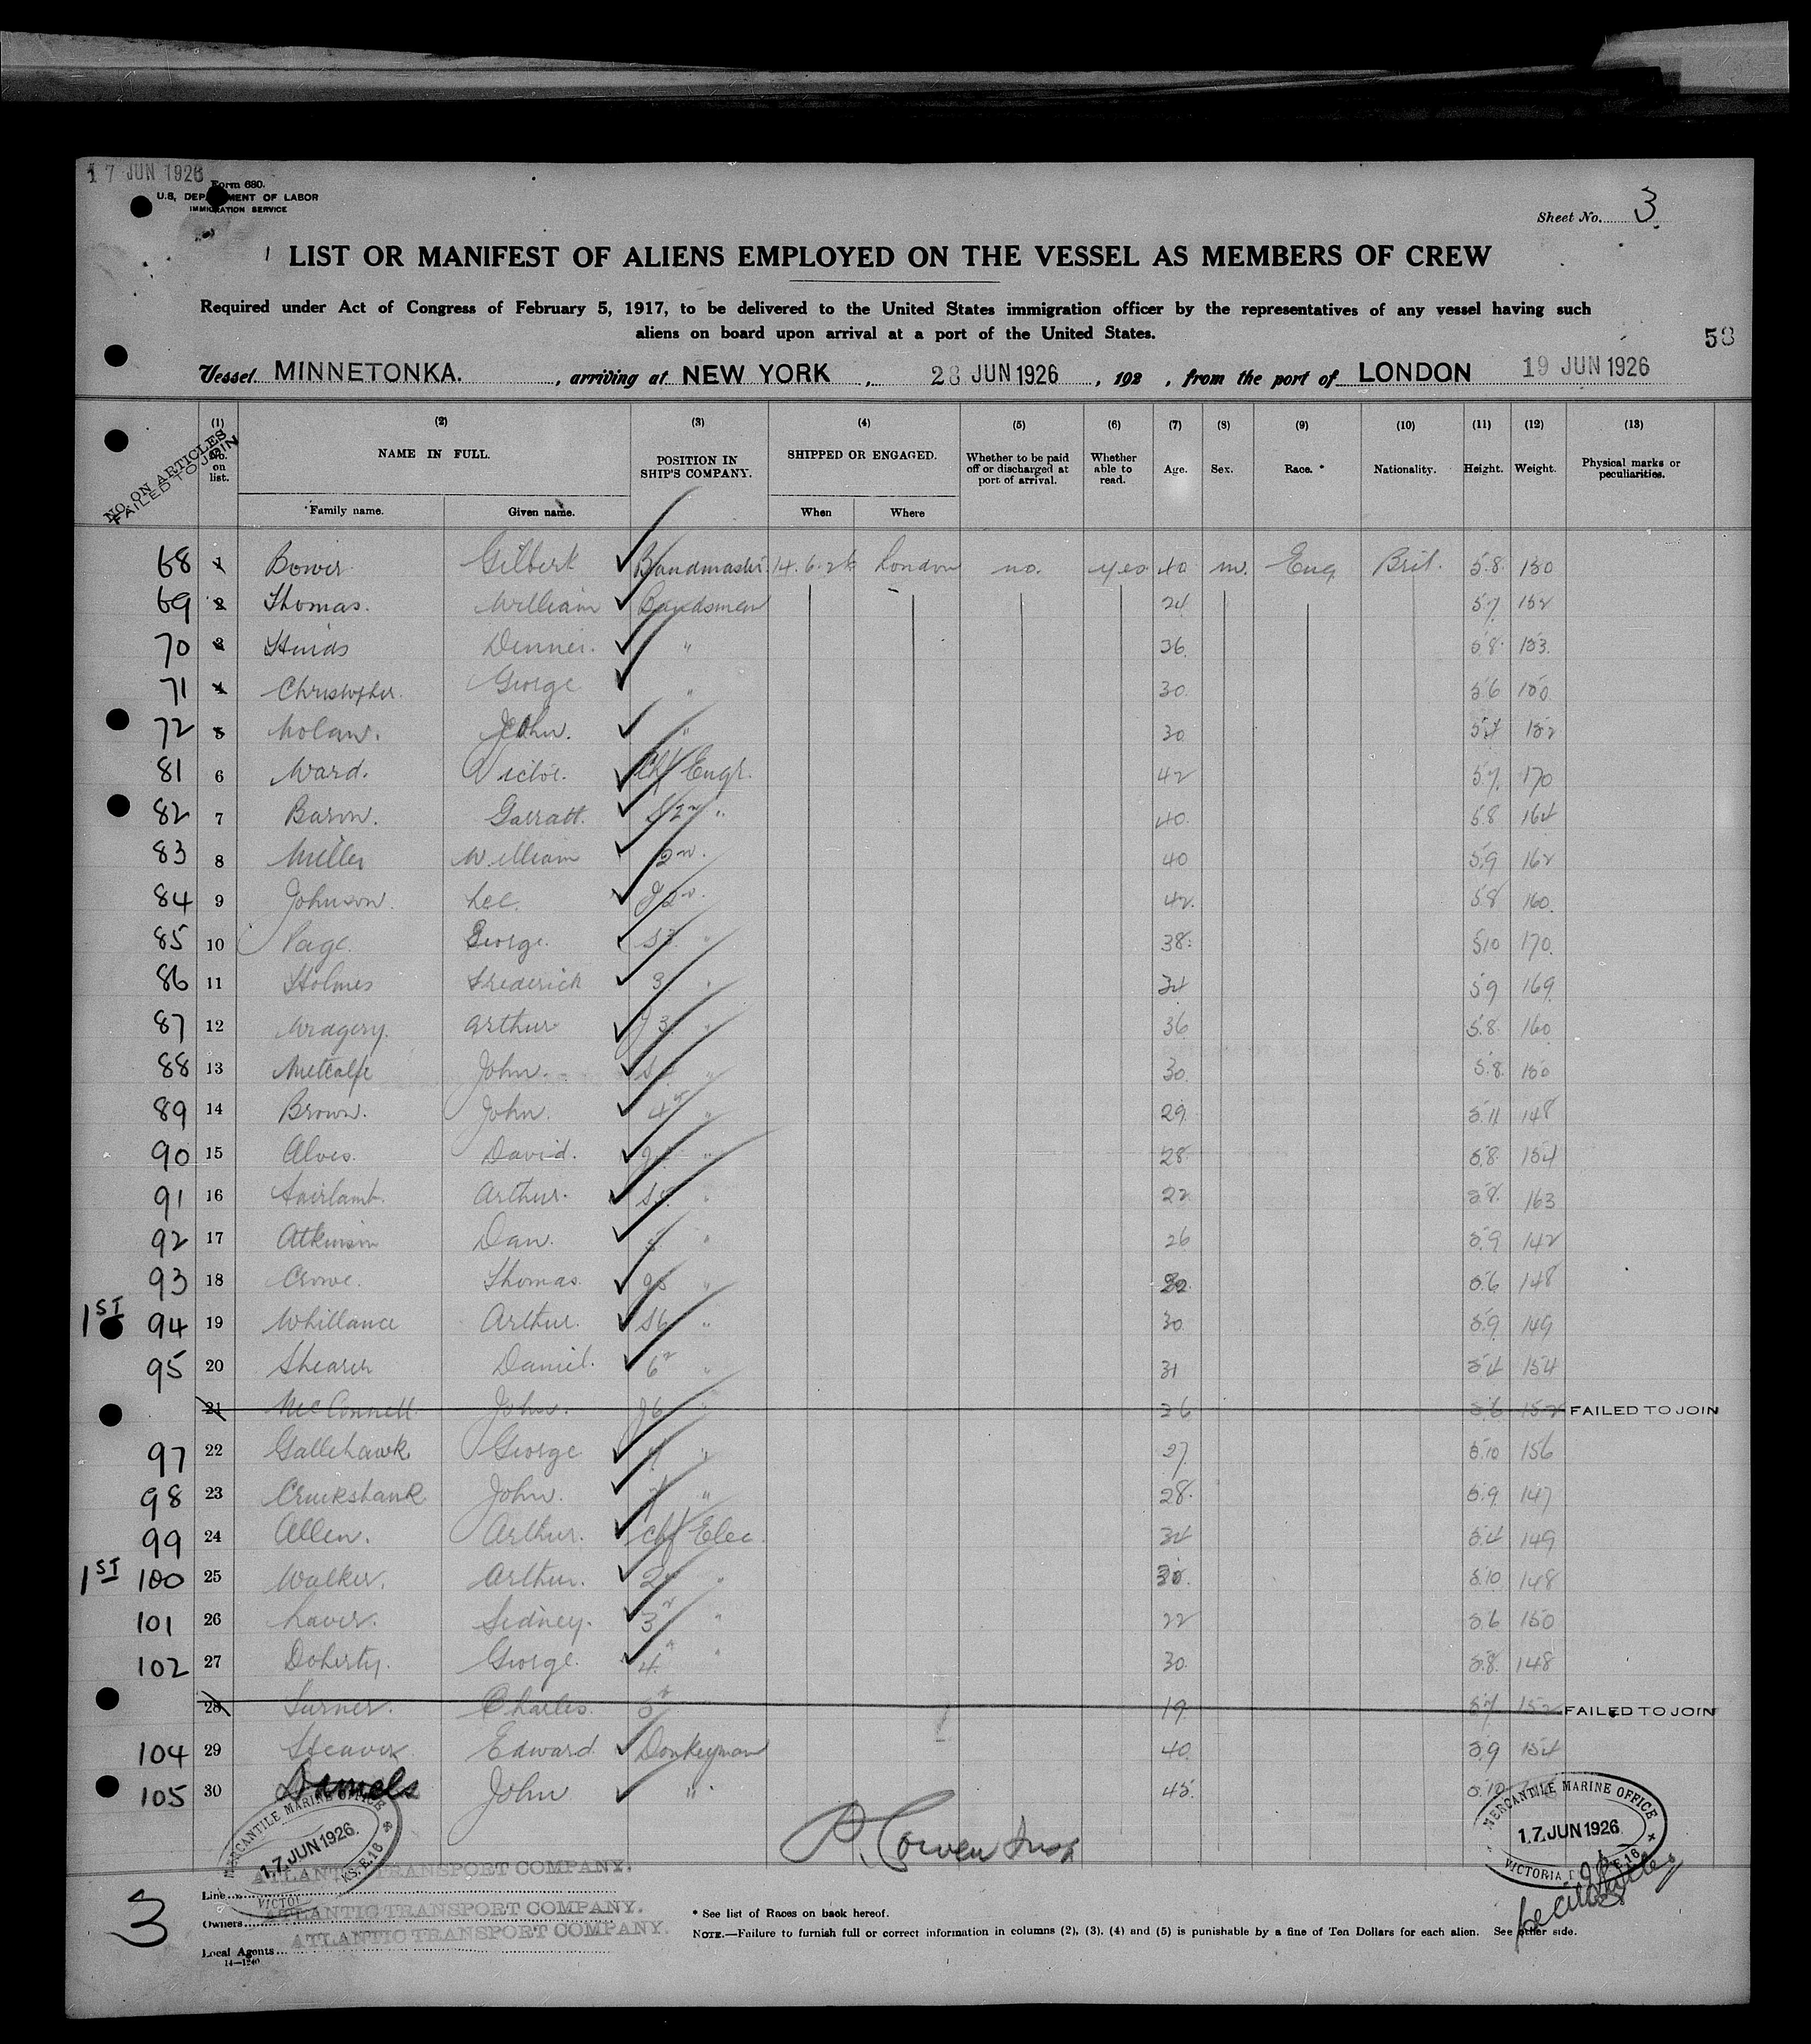 17 JUN 1926
Form 680.
U.S. DEPARTMENT OF LABOR
IMMIGRATION SERVICE
Sheet No. 3
LIST OR MANIFEST OF ALIENS EMPLOYED ON THE VESSEL AS MEMBERS OF CREW
Required under Act of Congress of February 5, 1917, to be delivered to the United States immigration officer by the representatives of any vessel having such
aliens on board upon arrival at a port of the United States.
58
Vessel MINNETONKA. , arriving at NEW YORK , 28 JUN 1926 , 192 , from the port of LONDON 19 JUN 1926
NO. ON ARTICLES
FAILED TO JOIN
(1) (2) (3) (4) (5) (6) (7) (8) (9) (10) (11) (12) (13)
No. on list. NAME IN FULL. POSITION IN SHIP'S COMPANY. SHIPPED OR ENGAGED. Whether to be paid off or discharged at port of arrival. Whether able to read. Age. Sex. Race. * Nationality. Height. Weight. Physical marks or peculiarities.
Family name. Given name. When Where
68 1 Bower Gilbert Bandmaster 14.6.26 London no. yes 40 m. Eng Brit. 5.8 150
69 2 Thomas. William Bandsman 24 5.7 152
70 3 Hinds " 36 5.8 153
71 4 Christopher. George " 30 5.6 150
72 5 Nolan. John. " 30 152
81 6 Ward. Victor. Chf Engr. 42 5.7 170
82 7 Baron. Garratt. S 2nd " 40 5.8 164
83 8 Miller William 2nd. 40 5.9 162
84 9 Johnson. Lee. J 2nd. 42 5.8 160
85 10 Page. George. S3 " 38 5.10 170
86 11 Holmes Frederick 3 " 34 5.9 169
87 12 Arthur J 3 " 36 5.8 160
88 13 Metcalfe John. " 30 5.8 150
89 14 Brown. John. 4th " 29 5.11 148
90 15 Alves. David. " 28 5.8 154
91 16 Fairlamb. Arthur. S5 " 22 5.8 163
92 17 Atkinson Dan. " 26 5.9 142
93 18 Crowe. Thomas " 5.6 148
1ST 94 19 Whillance Arthur. S6 " 30 5.9 149
95 20 Shearer Daniel. 6th " 31 5.4 154
21 McConnell John. J6 " 26 5.6 152 FAILED TO JOIN
97 22 Gallehawk George 7 " 27 5.10 156
98 23 Cruickshank John. 7 " 28 5.9 147
99 24 Allen. Arthur. Chf Elec. 34 5.4 149
1ST 100 25 Walker. Arthur. 2nd " 5.10 148
101 26 Laver. Sidney. 3rd " 22 5.6 150
102 27 Doherty. George. 4th " 30 5.8 148
28 Turner. Charles. 5th " 19 5.7 152 FAILED TO JOIN
104 29 Edward Donkeyman 40 5.9 154
105 30 Daniels John " 45 5.10
MERCANTILE MARINE OFFICE
17 JUN 1926
MERCANTILE MARINE OFFICE
17 JUN 1926
3
Line ATLANTIC TRANSPORT COMPANY.
Owners ATLANTIC TRANSPORT COMPANY.
Local Agents ATLANTIC TRANSPORT COMPANY.
14—1240
* See list of Races on back hereof.
NOTE.—Failure to furnish full or correct information in columns (2), (3), (4) and (5) is punishable by a fine of Ten Dollars for each alien. See other side.